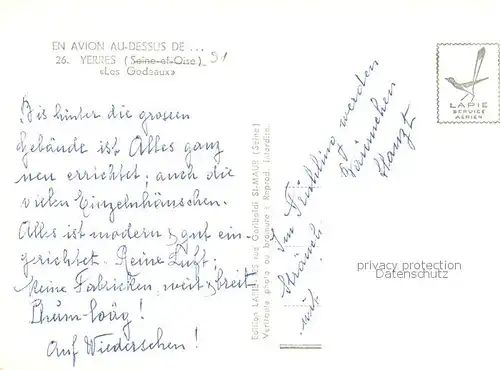 EN AVION AU-DESSUS DE ...
26. YERRES (Seine-et-Oise) 91
«Les Godeaux»
LAPIE
SERVICE
AERIEN
Bis hinter die grossen
Gebäude ist Alles ganz
neu errichtet; auch die
vielen Einzelnhäuschen.
Alles ist modern & gut ein-
gerichtet. Reine Luft;
keine Fabricken, weit & breit
Auf Wiedersehen!
Im Frühling werden
Sträuch.
Bäumchen
Edition LAPIE, rue Garibaldi St-MAUR (Seine)
Véritable photo au bromure - Reprod. interdite.
privacy protection
Datenschutz